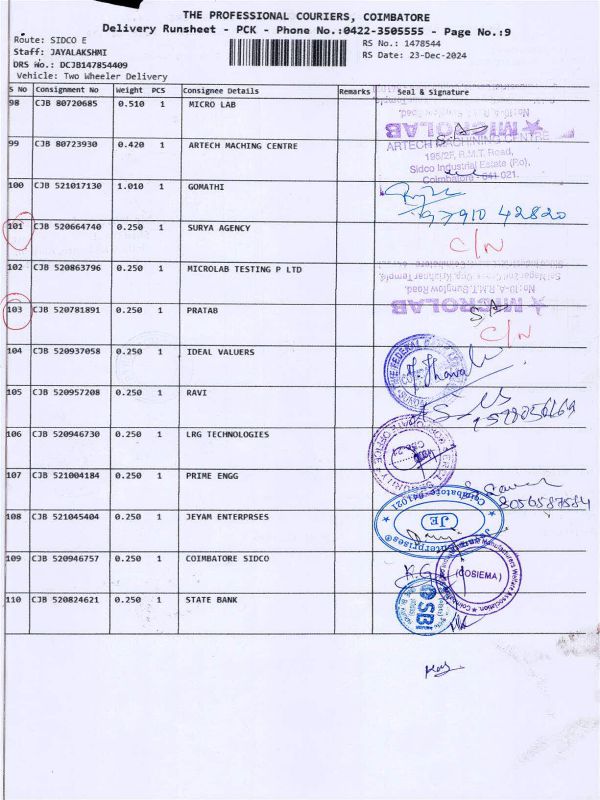 THE PROFESSIONAL COURIERS, COIMBATORE
Delivery Runsheet - PCK - Phone No.:0422-3505555 - Page No.:9
Route: SIDCO E
RS No.: 1478544
Staff: JAYALAKSHMI
RS Date: 23-Dec-2024
DRS No.: DCJB147854409
Vehicle: Two Wheeler Delivery
S No Consignment No Weight PCS Consignee Details Remarks Seal & Signature
98 CJB 80720685 0.510 1 MICRO LAB
MICROLAB
99 CJB 80723930 0.420 1 ARTECH MACHING CENTRE
ARTECH MACHINING CENTRE
195/2F, R.M.T. Road,
Sidco Industrial Estate (P.o),
Coimbatore - 641 021.
100 CJB 521017130 1.010 1 GOMATHI
97910 42820
101 CJB 520664740 0.250 1 SURYA AGENCY C/N
102 CJB 520863796 0.250 1 MICROLAB TESTING P LTD
No:10-A, R.M.T. Bungalow Road,
MICROLAB
103 CJB 520781891 0.250 1 PRATAB C/N
104 CJB 520937058 0.250 1 IDEAL VALUERS
105 CJB 520957208 0.250 1 RAVI
106 CJB 520946730 0.250 1 LRG TECHNOLOGIES
107 CJB 521004184 0.250 1 PRIME ENGG
8056587584
108 CJB 521045404 0.250 1 JEYAM ENTERPRSES
Coimbatore-641021
JE
Enterprises
109 CJB 520946757 0.250 1 COIMBATORE SIDCO
K.G
(COSIEMA)
110 CJB 520824621 0.250 1 STATE BANK
SBI